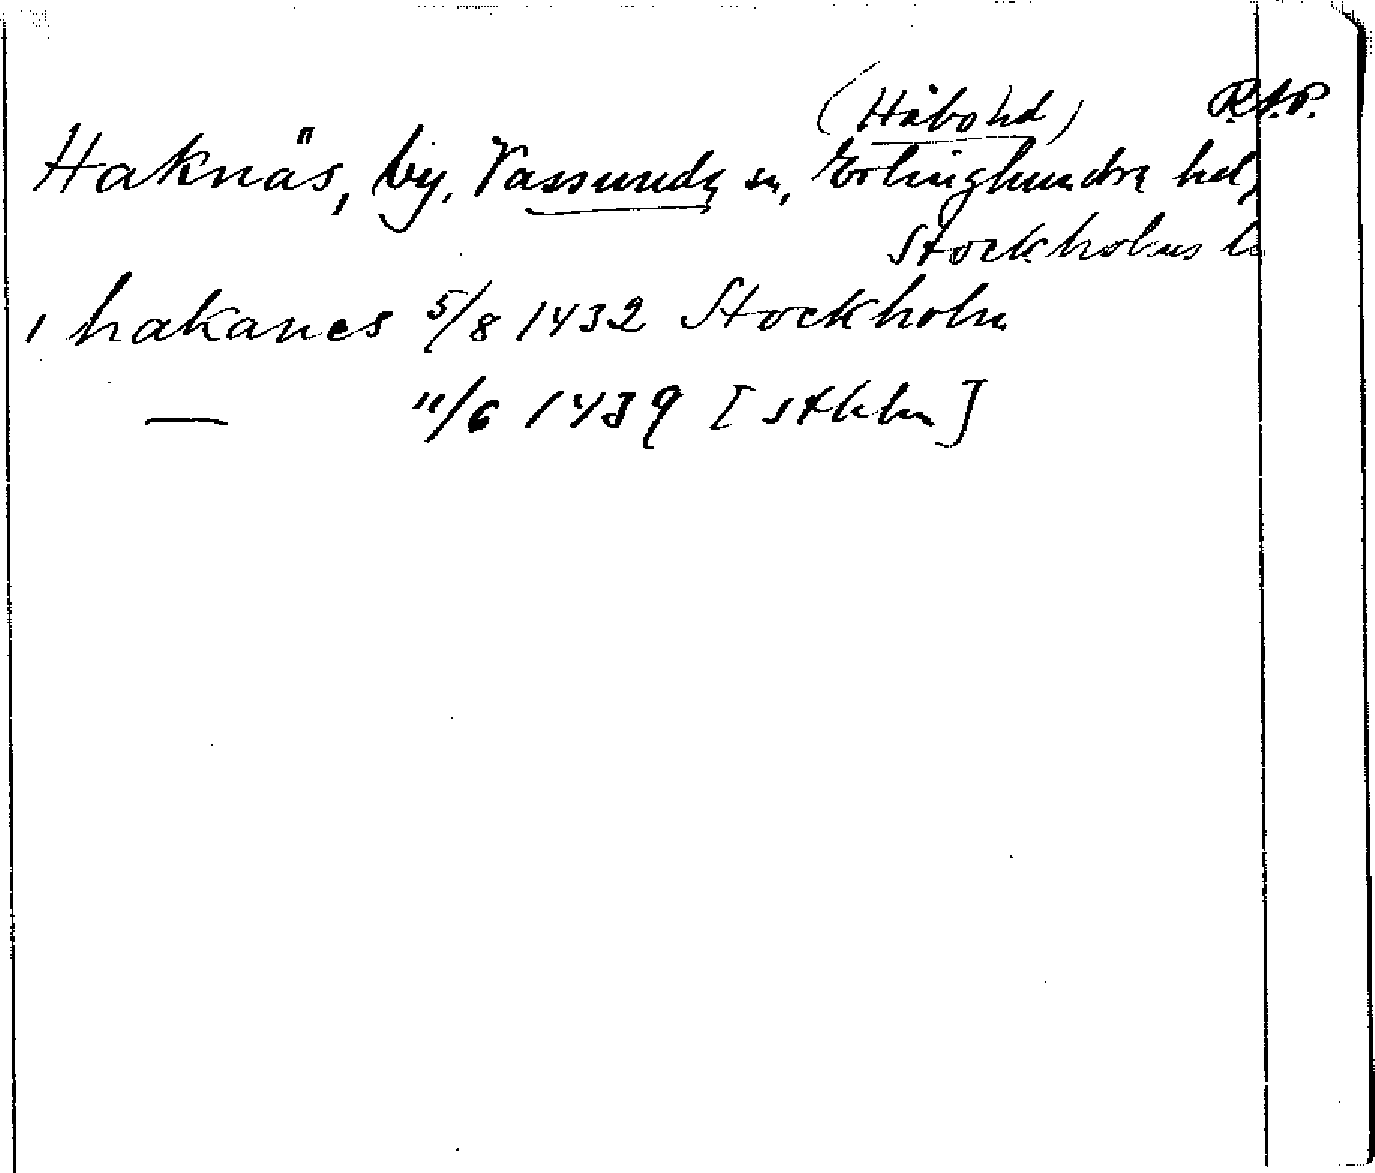 (Håbo hd) R.A.P.
Haknäs, by, Vassunda sn, Erlinghundra hd,
Stockholms l.
i hakanes 5/8 1432 Stockholm
— 11/6 1439 [Sthlm]